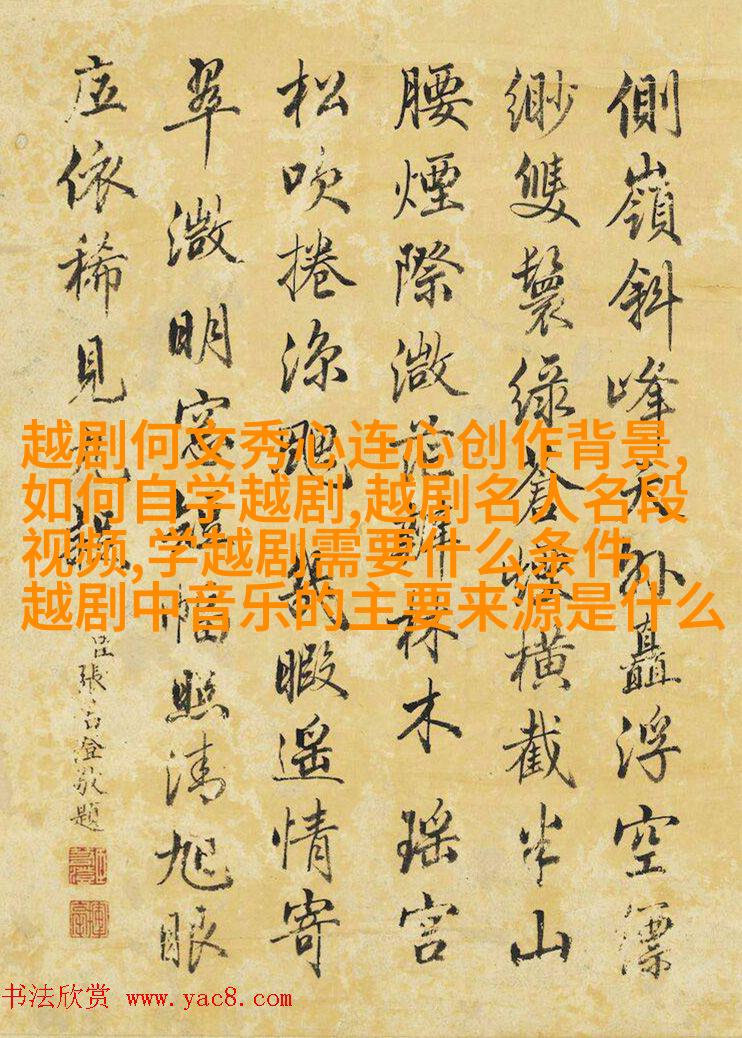 側嶺斜峰天外矗浮空縹
緲雙鬟綠蒼橫截半山
腰煙際微茫辨林木瑤宮
松吹捲涼颸幾暇遥情寄
翠微明窓幅照清旭眼
底依稀見九
臣張若澄敬題
越剧何文秀心连心创作背景,
如何自学越剧,越剧名人名段
视频,学越剧需要什么条件,
越剧中音乐的主要来源是什么
书法欣赏 www.yac8.com